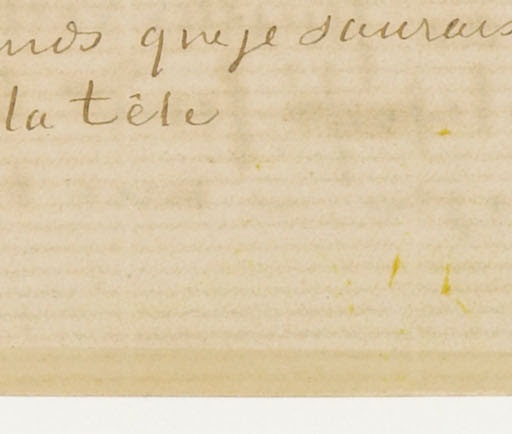 que je saurais
la tête